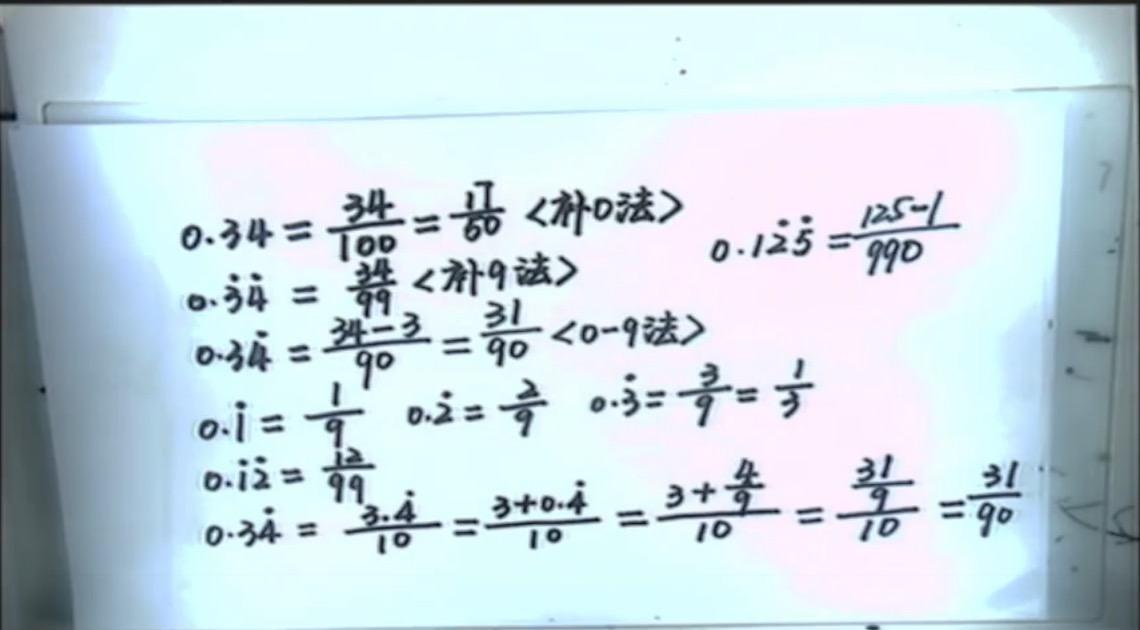 0.34 = 34/100 = 17/50 <补0法>
0.12̇5̇ = 125-1/990
0.3̇4̇ = 34/99 <补9法>
0.34̇ = 34-3/90 = 31/90 <0-9法>
0.1̇ = 1/9 0.2̇ = 2/9 0.3̇ = 3/9 = 1/3
0.1̇2̇ = 12/99
0.34̇ = 3.4̇/10 = 3+0.4̇/10 = 3+4/9/10 = 31/9/10 = 31/90